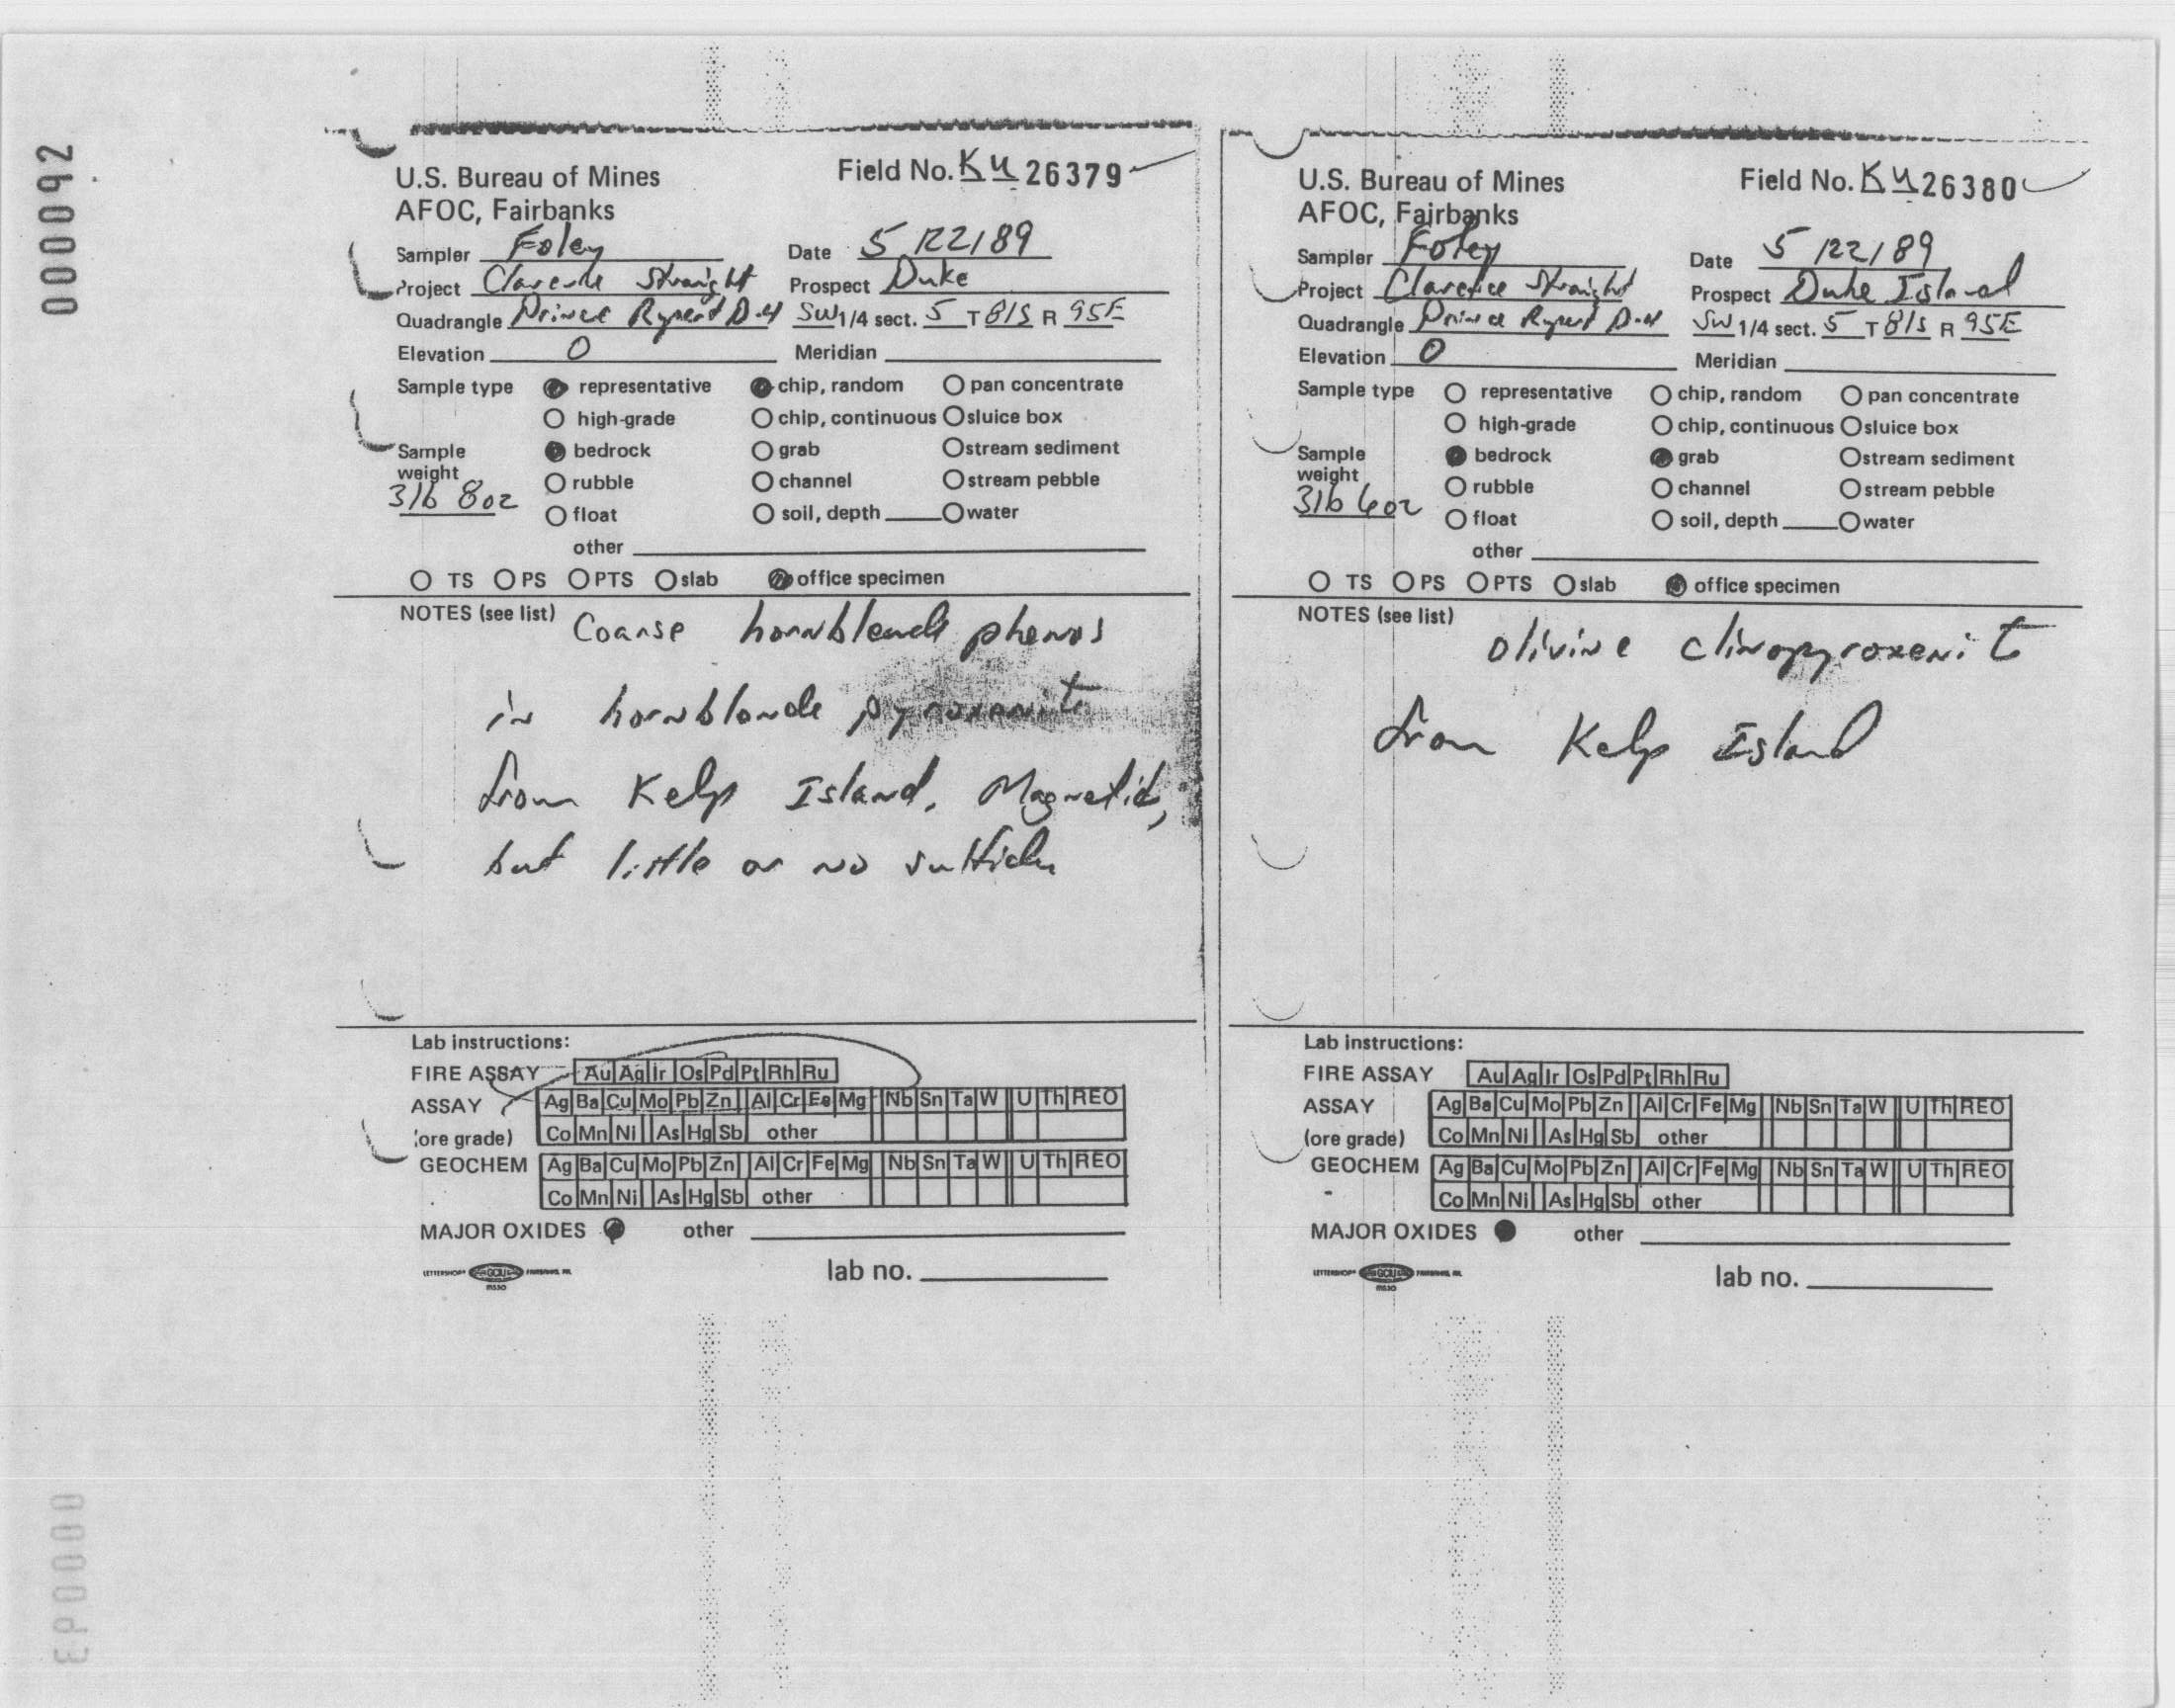 000092
U.S. Bureau of Mines
AFOC, Fairbanks
Field No. KW 26379
Sampler Foley
Date 5/22/89
Project Clarence Straight
Prospect Duke
Quadrangle Prince Rupert D-4 SW 1/4 sect. 5 T 81S R 95E
Elevation 0 Meridian
Sample type representative chip, random pan concentrate
high-grade chip, continuous sluice box
Sample weight bedrock grab stream sediment
3lb 8oz rubble channel stream pebble
float soil, depth water
other
TS PS PTS slab office specimen
NOTES (see list) Coarse hornblende phenos
in hornblende pyroxenite
from Kelp Island. Magnetic,
but little or no sulfides
Lab instructions:
FIRE ASSAY Au Ag Ir Os Pd Pt Rh Ru
ASSAY Ag Ba Cu Mo Pb Zn Al Cr Fe Mg Nb Sn Ta W U Th REO
(ore grade) Co Mn Ni As Hg Sb other
GEOCHEM Ag Ba Cu Mo Pb Zn Al Cr Fe Mg Nb Sn Ta W U Th REO
Co Mn Ni As Hg Sb other
MAJOR OXIDES other
lab no.
U.S. Bureau of Mines
AFOC, Fairbanks
Field No. KW 26380
Sampler Foley
Date 5/22/89
Project Clarence Straight
Prospect Duke Island
Quadrangle Prince Rupert D-4 SW 1/4 sect. 5 T 81S R 95E
Elevation 0 Meridian
Sample type representative chip, random pan concentrate
high-grade chip, continuous sluice box
Sample weight bedrock grab stream sediment
3lb 6oz rubble channel stream pebble
float soil, depth water
other
TS PS PTS slab office specimen
NOTES (see list)
olivine clinopyroxenite
from Kelp Island
Lab instructions:
FIRE ASSAY Au Ag Ir Os Pd Pt Rh Ru
ASSAY Ag Ba Cu Mo Pb Zn Al Cr Fe Mg Nb Sn Ta W U Th REO
(ore grade) Co Mn Ni As Hg Sb other
GEOCHEM Ag Ba Cu Mo Pb Zn Al Cr Fe Mg Nb Sn Ta W U Th REO
Co Mn Ni As Hg Sb other
MAJOR OXIDES other
lab no.